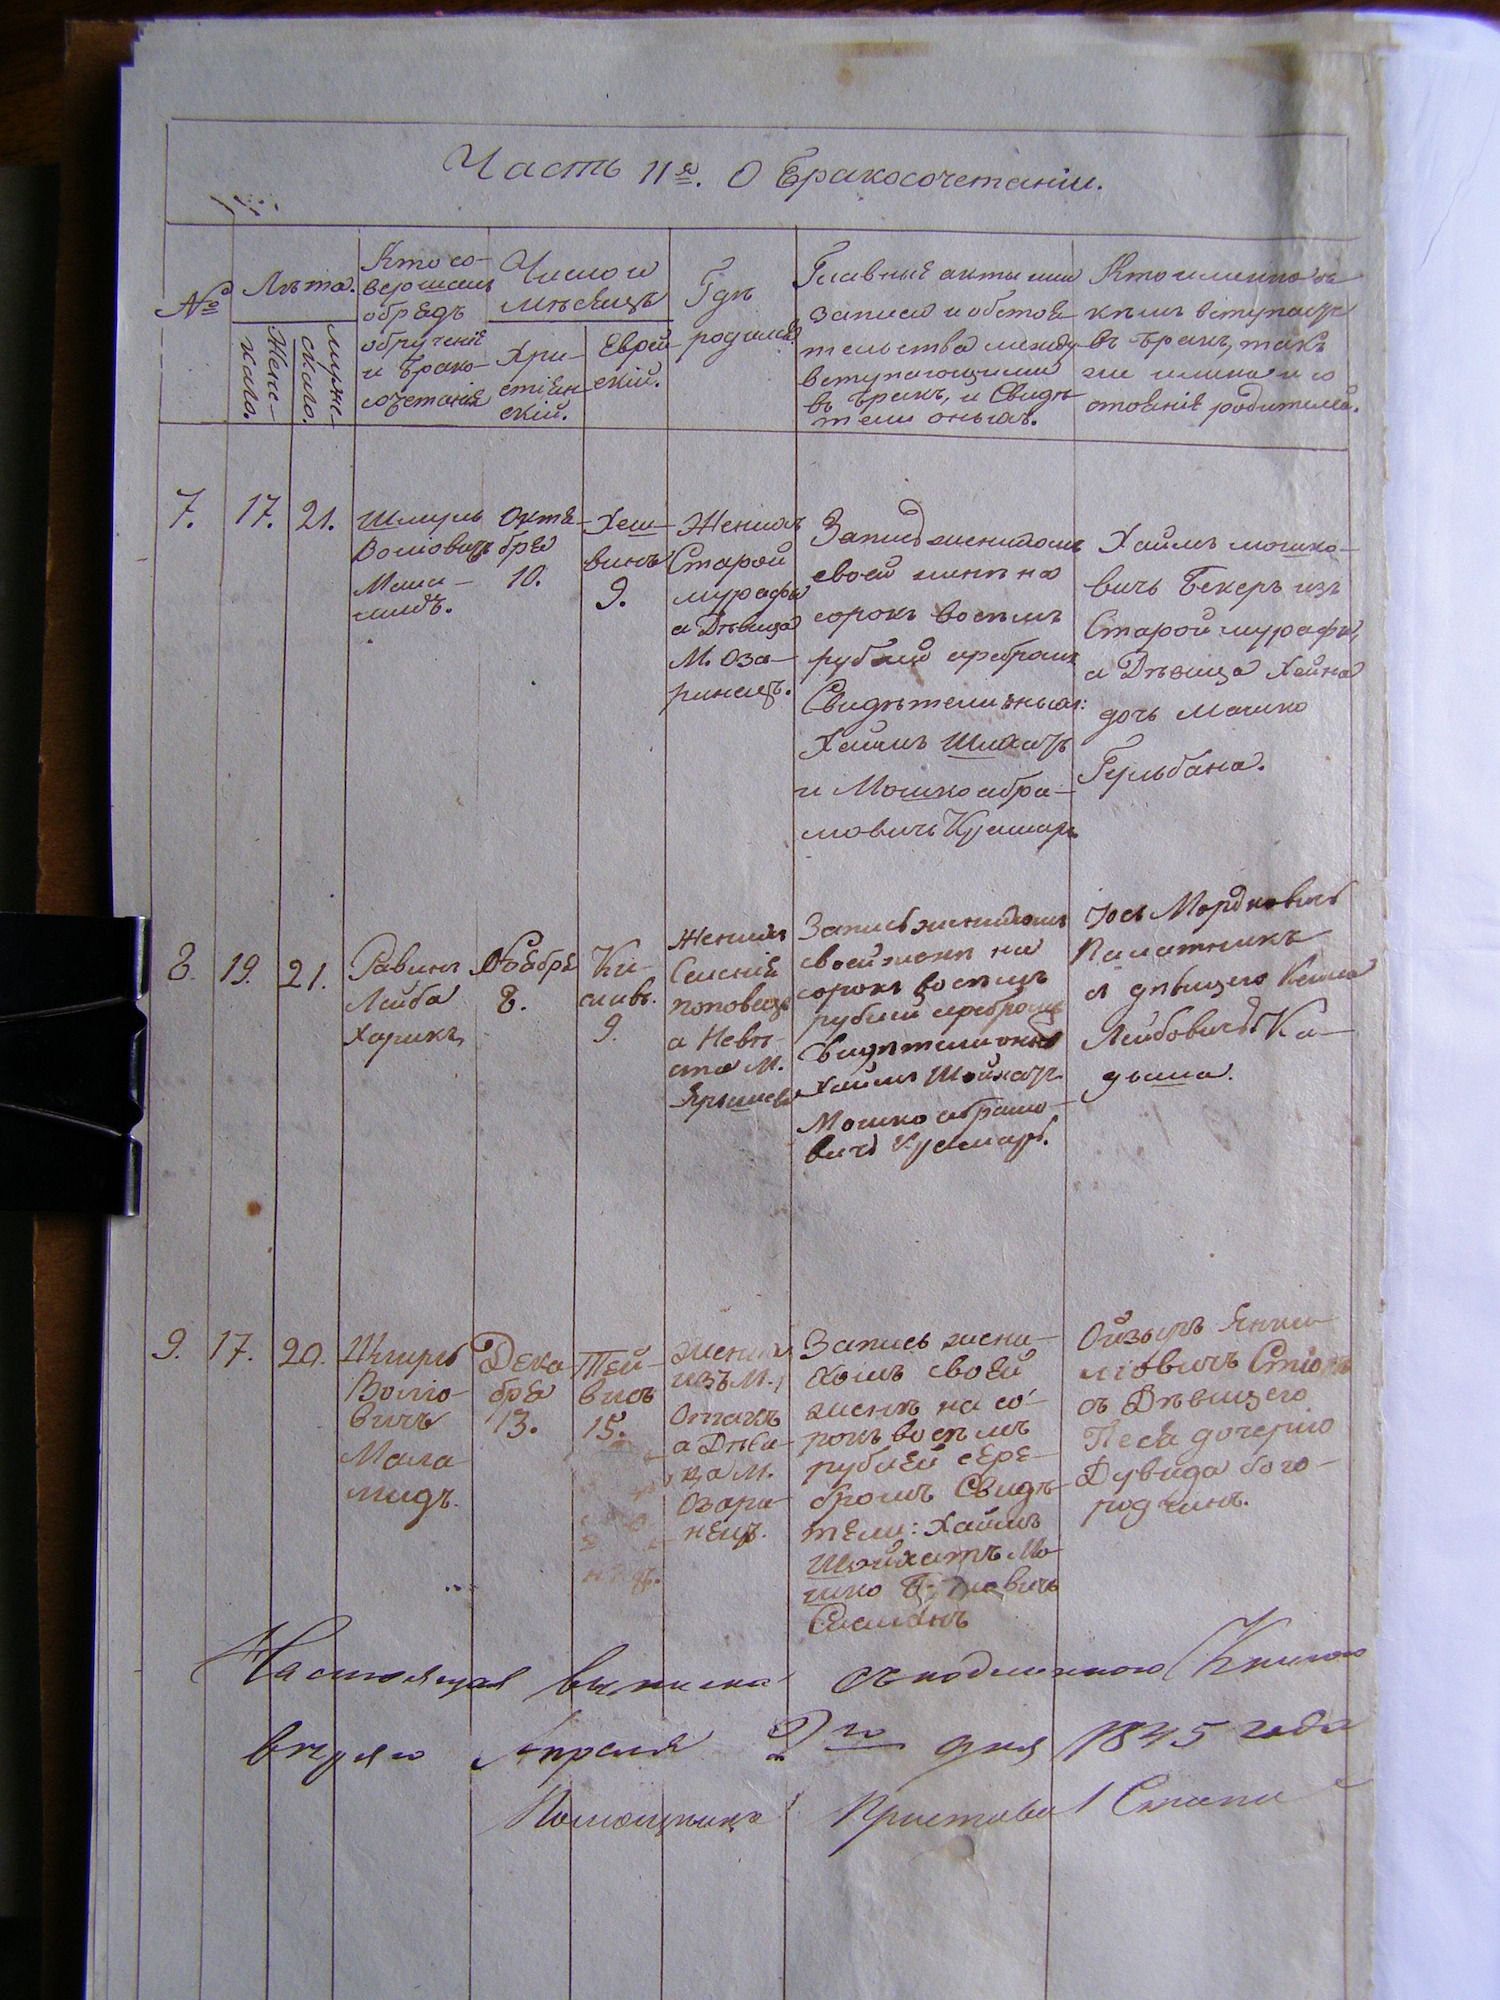 Часть IIя. О Бракосочетаніи.
№
Лѣта.
Женс-
каго.
Мужс-
скаго.
Кто со-
вершалъ
обрядъ
обрученія
и Брако-
сочетанія
Число и
мѣсяцъ
Хри-
стіян-
скій.
Еврей-
скій.
Гдѣ
родился
Главныя акты или
записи и обстоя-
тельства между
вступающими
въ Бракъ, и Свидѣ-
тели оныхъ.
Кто именно съ
кѣмъ вступаетъ
въ Бракъ, такъ
же имена и со
стоянія родителей.
7.
17.
21.
Шмуль
Волiовичъ
Мала-
мидъ.
Октя-
бра
10.
Хеш-
винъ
9.
Женихъ
Старой
мурафы
а Дѣвица
М. Оза-
ринецъ.
Запись женихомъ
своей женѣ на
сорокъ восемь
рублей сребромъ
Свидѣтели оныхъ:
Хаимъ
и Мошко абра-
мовичъ Кушнаръ
Хаимъ мошко-
вичъ Бекеръ изъ
Старой мурафы,
а Дѣвица Хейна
дочь Мошко
Гульбана.
8.
19.
21.
Равинъ
Лейба
Харикъ
Ноября
8.
Ки-
сливъ.
9.
Женихъ
Селенія
поповецъ
а Невѣ-
ста М.
Ярышева
Запись женихомъ
своей женѣ на
сорокъ восемь
рублей сребромъ
Свидѣтели оныхъ
Хаимъ Шойхатъ
Мошко абрамо-
вичъ Кушнаръ.
Іось Мордковичъ
Палатникъ
а дѣвицею
Лейбовичъ Ка-
дыша.
9.
17.
20.
Шмуль
Волiо-
вичъ
Мала-
мидъ.
Дека-
бря
13.
Тей-
висъ
15.
Женихъ
изъ М.
Отакъ
а Дѣви-
ца М.
Озари-
нецъ.
Запись жени-
хомъ своей
женѣ на со-
рокъ восемъ
рублей сере-
бромъ Свидѣ-
тели: Хаимъ
Шойхатъ Мо-
шко
Ойзыръ Янке-
лiовичъ
съ Дѣвицею
Песя дочерію
Дувида бого-
родчинъ.
Настоящая выписка съ подлинною Книгою
вѣрна Апреля 2го дня 1845 года
Помощникъ Пристава